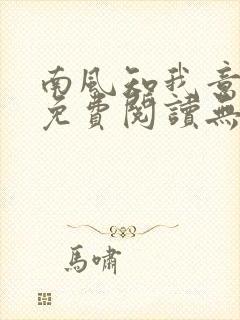 南風知我意
免費閱讀無
馬嘯